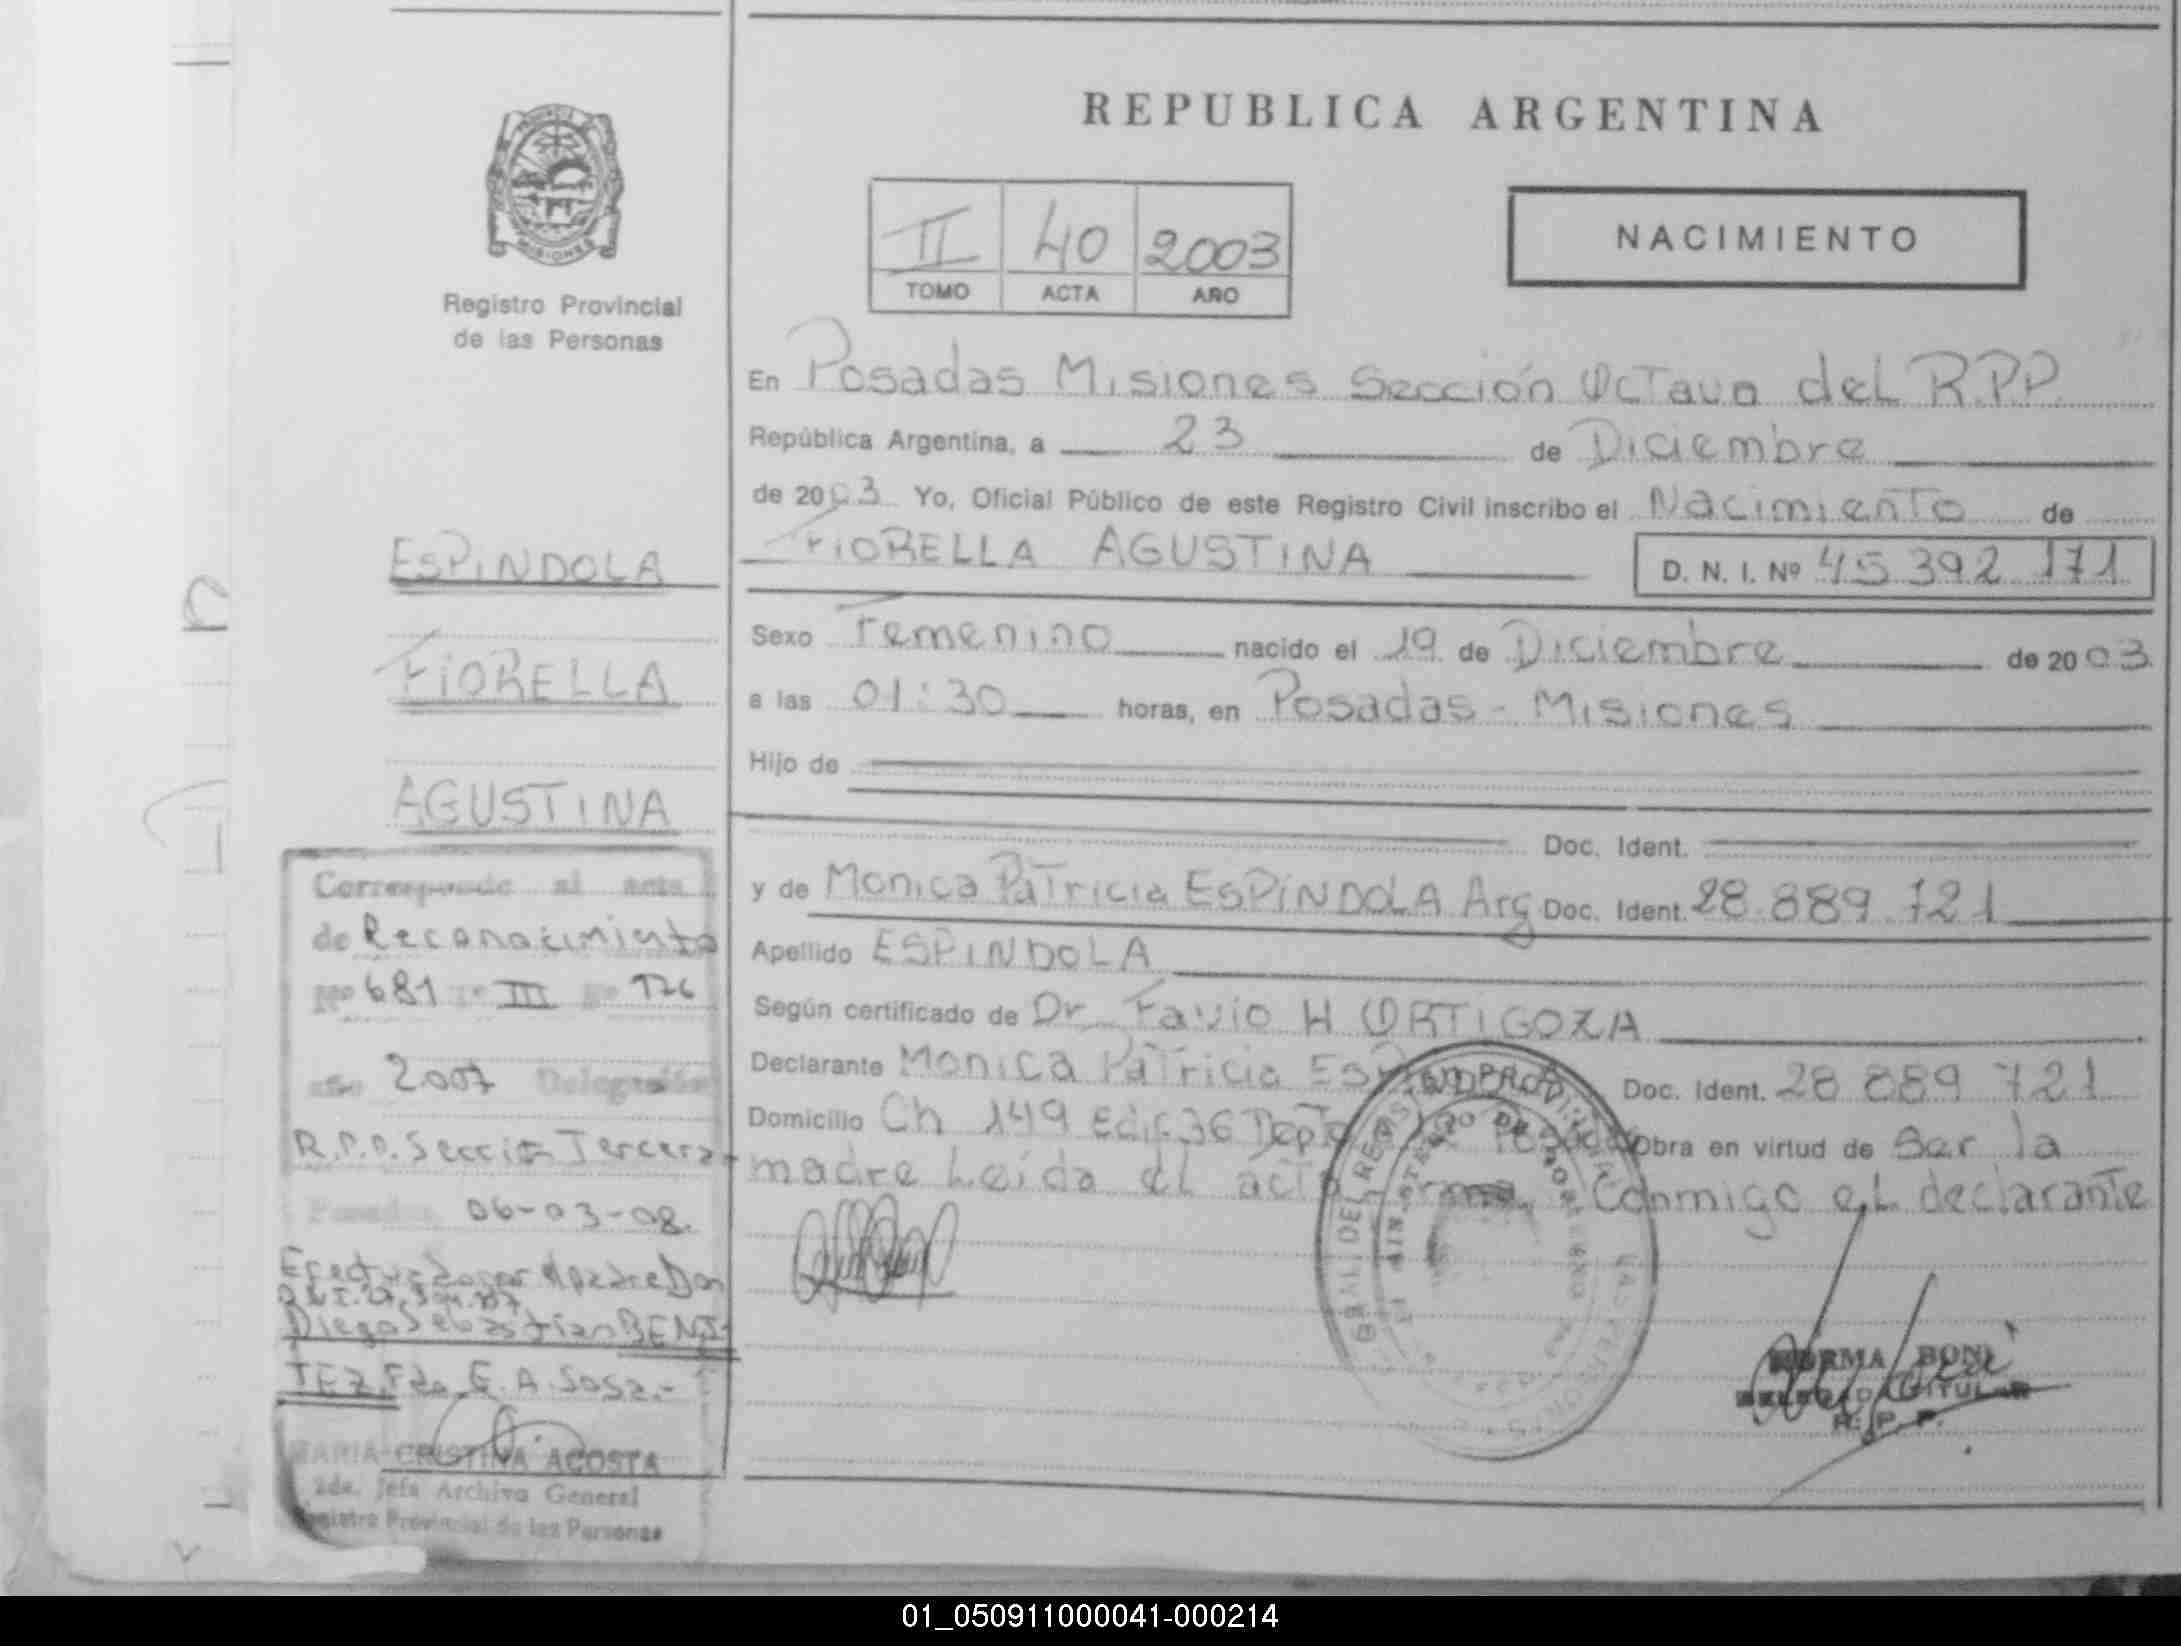 REPUBLICA ARGENTINA
MISIONES
Registro Provincial
de las Personas
II 40 2003
TOMO ACTA AÑO
NACIMIENTO
En Posadas Misiones Sección Octava del R.P.P.
República Argentina, a 23 de Diciembre
de 2003 Yo, Oficial Público de este Registro Civil inscribo el Nacimiento de
FIORELLA AGUSTINA D. N. I. Nº 45 392 171
Sexo Femenino nacido el 19 de Diciembre de 2003
a las 01:30 horas, en Posadas - Misiones
Hijo de
Doc. Ident.
y de Monica Patricia ESPINDOLA Arg Doc. Ident. 28.889.721
Apellido ESPINDOLA
Según certificado de Dr Favio H ORTIGOZA
Declarante Monica Patricia Doc. Ident. 28 889 721
Domicilio Ch 149 Edif 36 Depto Obra en virtud de Ser la
madre Leída el acta Conmigo el declarante
NORMA BONI
TITULAR
R. P. P.
ESPINDOLA
FIORELLA
AGUSTINA
Corresponde al acta
de Reconocimiento
Nº 681 Tº III Fº 176
año 2007 Delegación
R.P.P. Sección Tercera
Posadas, 06-03-08.
Efectuado por el padre Don
D.N.I.
Diego Sebastian BENI-
TEZ. Fdo. E. A. Sosa.-
MARIA CRISTINA ACOSTA
2da. Jefa Archivo General
Registro Provincial de las Personas
01_050911000041-000214